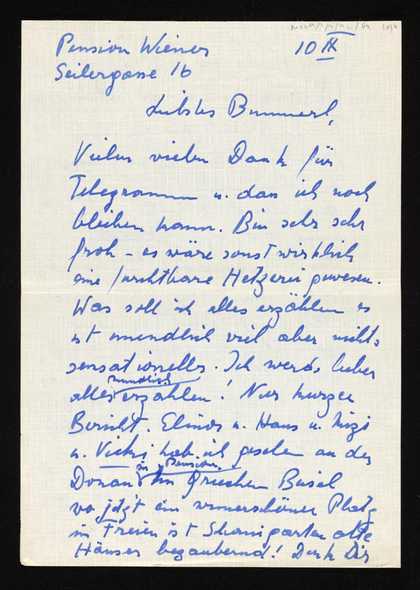 Pension Wiener 10 IX
Seilergasse 16
Liebstes Bummerl,
Vielen vielen Dank für
Telegramm u. das ich noch
bleiben kann. Bin sehr sehr
froh – es wäre sonst wirklich
eine furchtbare Hetzerei gewesen.
Was soll ich alles erzählen es
ist unendlich viel aber nichts
sensationelles. Ich werds lieber
alles mündlich erzählen! Nur kurzer
Bericht. u. Hans u. Mizi
u. Vicki hab ich gesehen an der
Donau in Pension. Im Griechen Beisel
wo jetzt ein wunderschöner Platz
im Freien ist Schanigarten alte
Häuser bezaubernd! Denk Dir